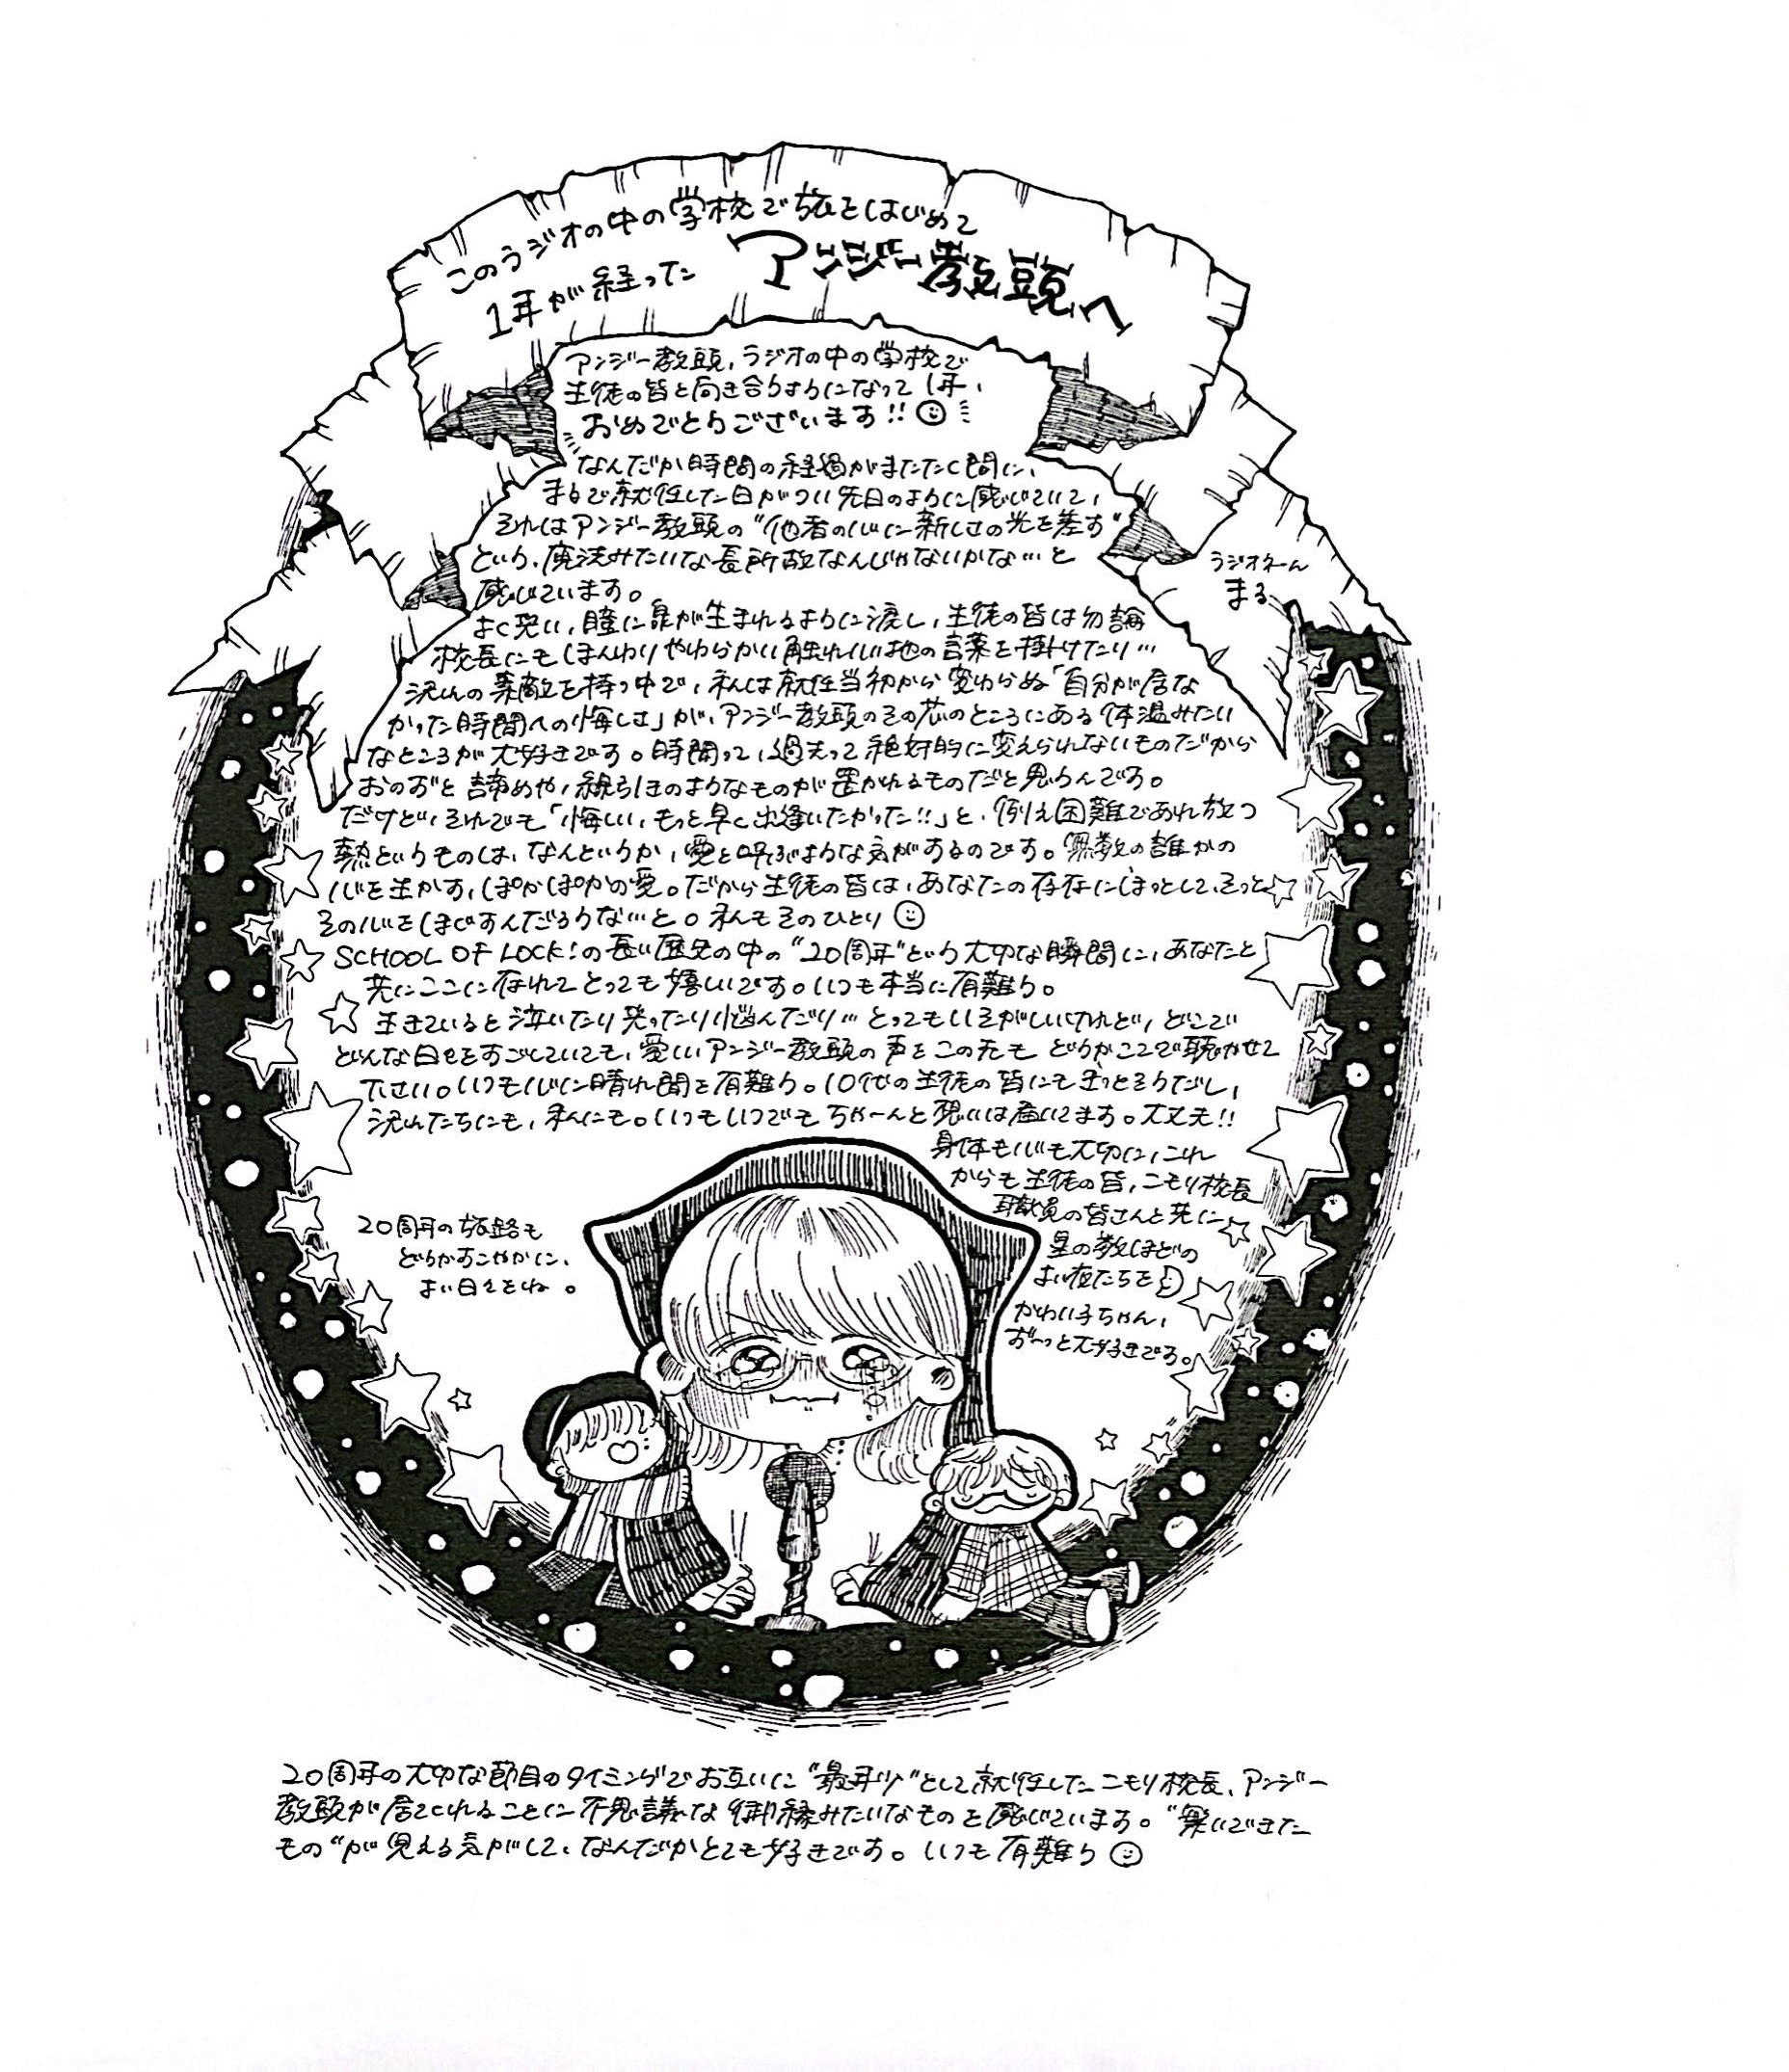 このラジオの中の学校で旅をはじめて
1年が経った アンジー教頭へ
アンジー教頭、ラジオの中の学校で
生徒の皆と向き合うようになって1年、
おめでとうございます!!
なんだか時間の経過がまたたく間に、
まるで就任した日がつい先日のように感じていて、
それはアンジー教頭の"他者の心に新しさの光を差す"
という、魔法みたいな長所故なんじゃないかな…と
感じています。
ラジオネーム
まる
よく笑い、瞳に星が生まれるように涙し、生徒の皆は勿論
校長にもほんわりやわらかい触れ心地の言葉を掛けたり…
沢山の素敵を持つ中で、私は就任当初から変わらぬ「自分が居な
かった時間への悔しさ」が、アンジー教頭のその芯のところにある体温みたい
なところが大好きです。時間って、過去って絶対的に変えられないものだから
おのずと諦めや、線引きのようなものが置かれるものだと思うんです。
だけど、それでも「悔しい、もっと早く出逢いたかった!!」と、例え困難であれ放つ
熱というものは、なんというか、愛と呼ぶような気がするのです。無数の誰かの
心を生かす、ぽかぽかの愛。だから生徒の皆は、あなたの存在にほっとして、そっと
その心をほどすんだろうな…と。私もそのひとり
SCHOOL OF LOCK!の長い歴史の中の"20周年"という大切な瞬間に、あなたと
共にここに在れてとっても嬉しいです。いつも本当に有難う。
生きていると泣いたり笑ったり悩んだり…とってもいそがしいけれど、どこで
どんな日々をすごしていても、愛しいアンジー教頭の声をこの先も どうかここで聴かせて
下さい。いつも心に晴れ間を有難う。10代の生徒の皆にもきっとそうだし、
沢山たちにも、私にも。いつもいつでもちゃーんと想いは届いてます。大丈夫!!
身体も心も大切に、これ
からも生徒の皆、こもり校長
職員の皆さんと共に
星の数ほどの
よい夜たちを
かわい子ちゃん、
ずーっと大好きです。
20周年の旅路も
どうかすこやかに、
よい日々をね。
20周年の大切な節目のタイミングでお互いに"最年少"として就任したこもり校長、アンジー
教頭が居てくれることに不思議な御縁みたいなものを感じています。"繋いできた
もの"が見える気がして、なんだかとても好きです。いつも有難う